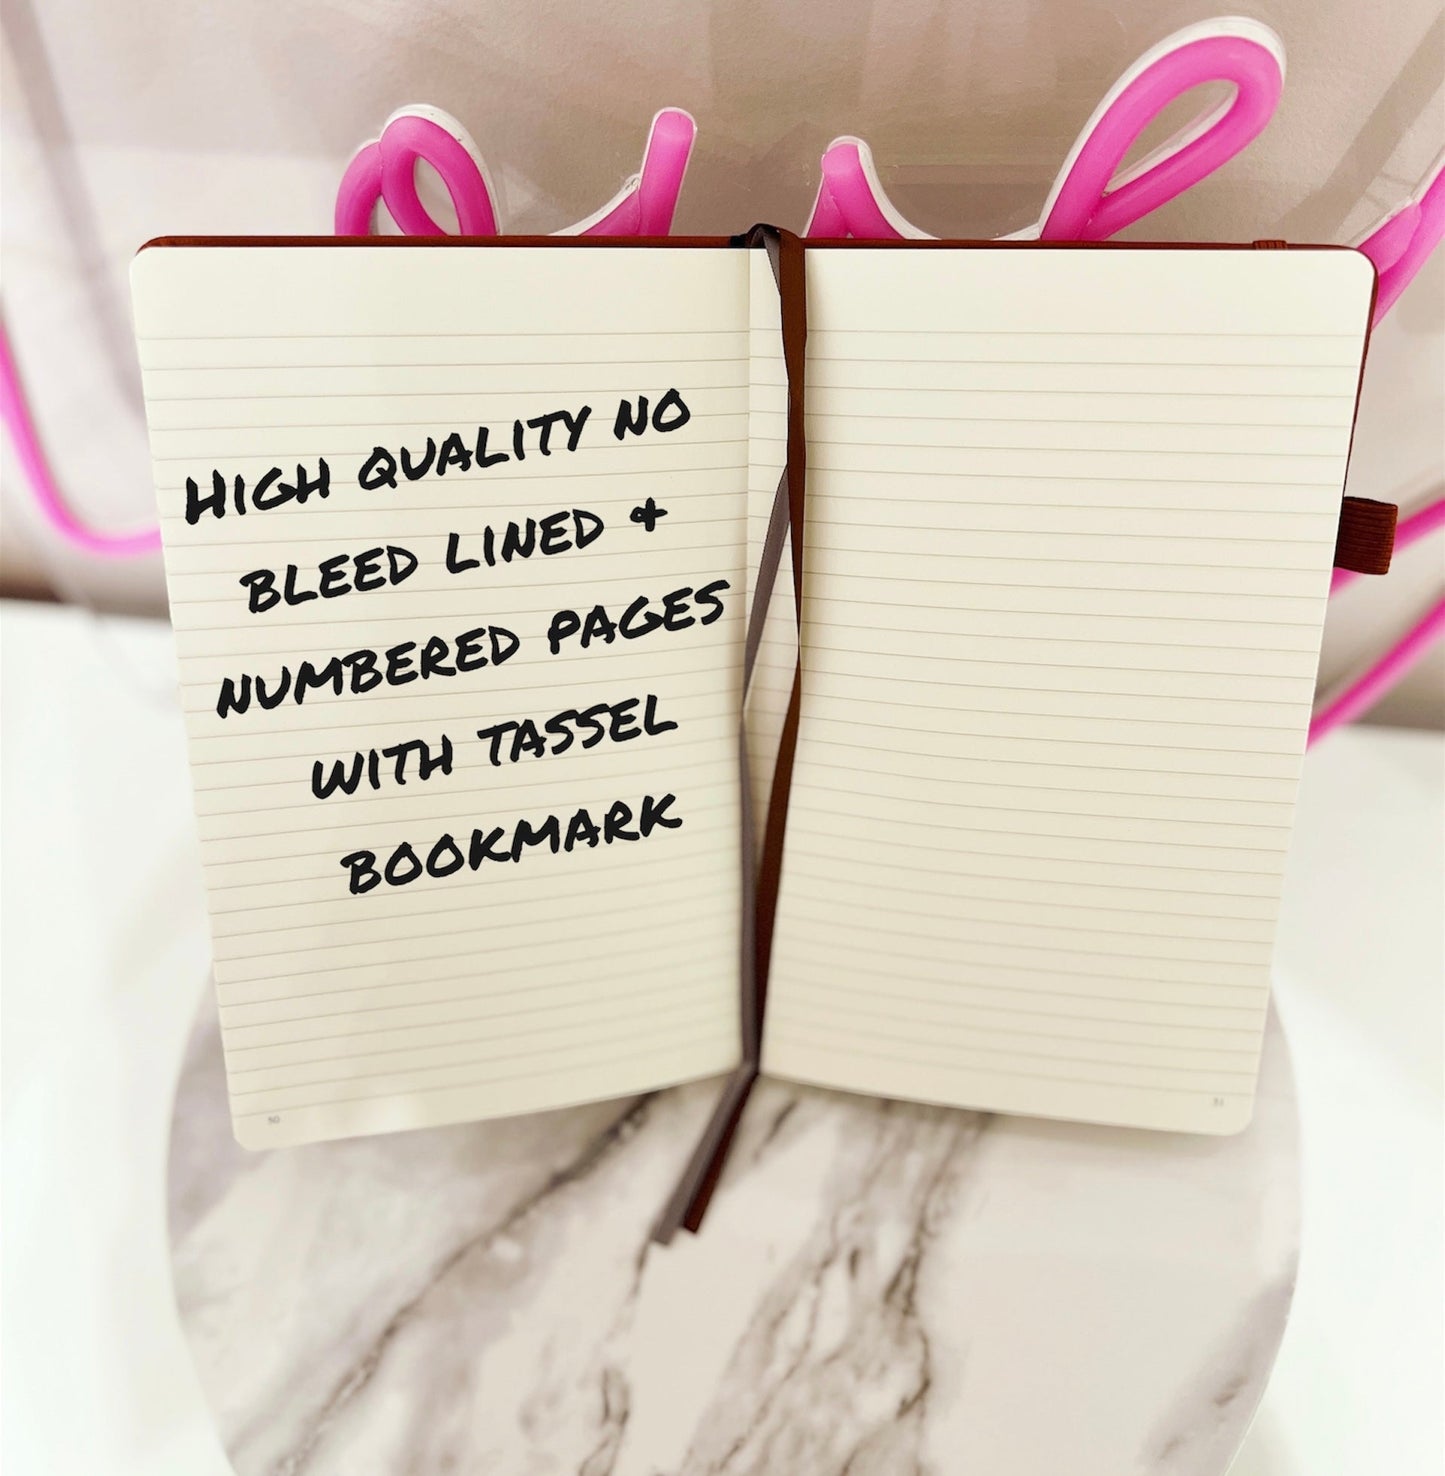 HIGH QUALITY NO
BLEED LINED &
NUMBERED PAGES
WITH TASSEL
BOOKMARK
50
51